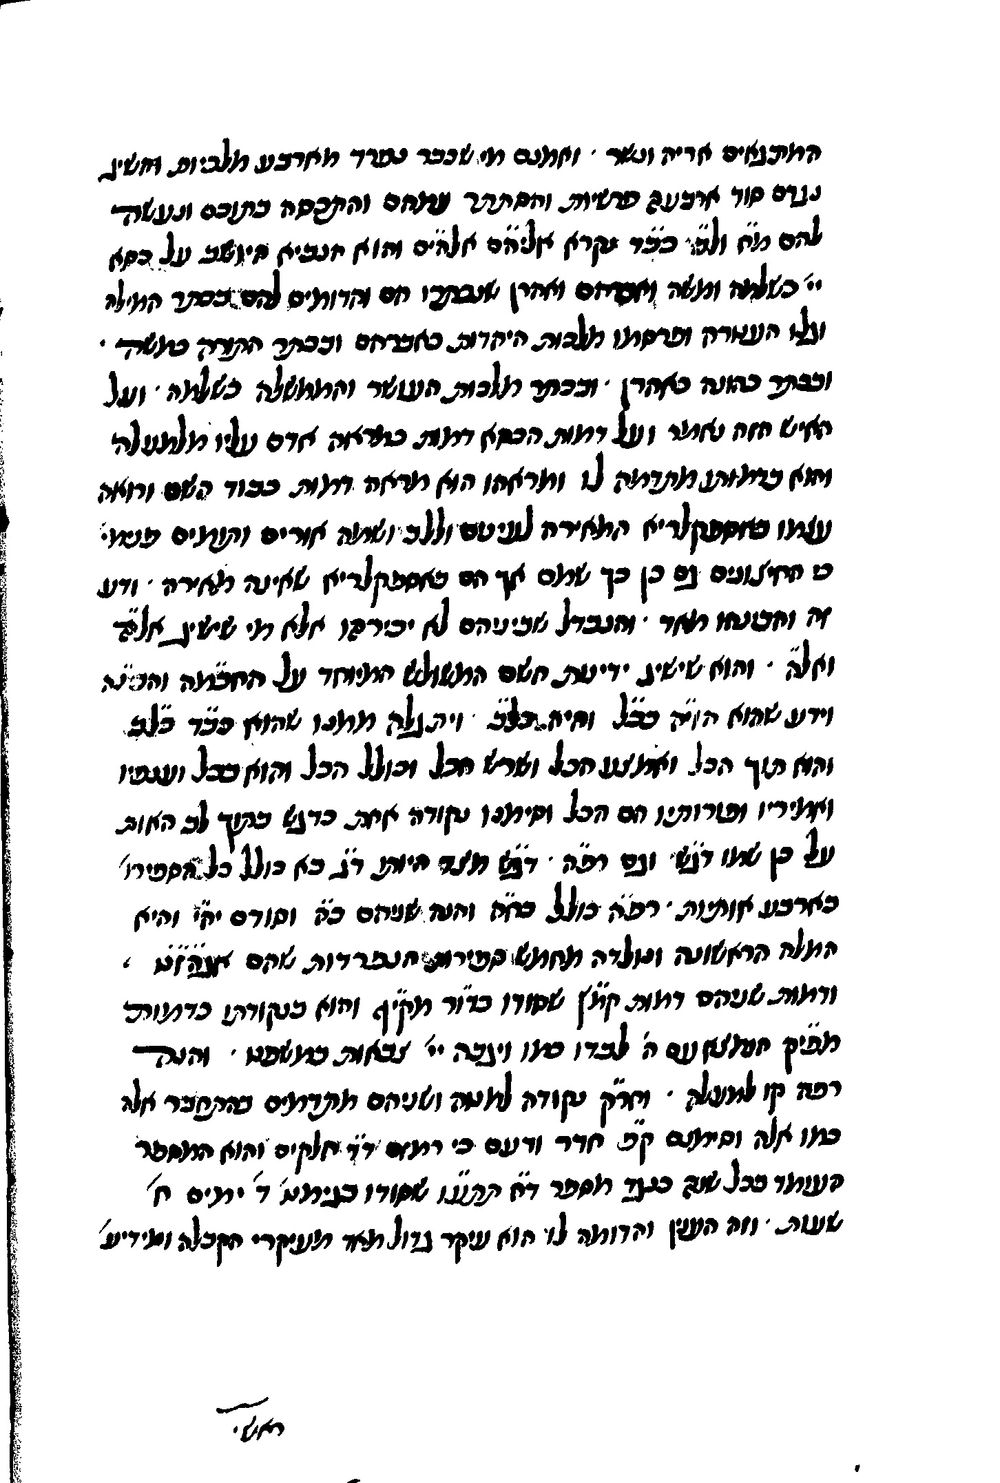 המתנאים אריה ונשר · ואמנם מי שכבר נפרד מארבע מלכיות והשיג
נגדם סוד ארבעה פרשיות והסתתר עמהם והתכסה בתוכם ונעשה
להם מ״א ול״ב כ״בד נקרא אלי״הם אלה״ים והוא הנביא היושב על כסא
יי׳ כשלמה ומשה ואברהם ואהרן שנכתבו הם והדומים להם בכתר המילה
ועליו העטרה ופרסמו מלכות היהדות כאברהם ובכתר התורה כמשה ·
ובכתר כהונה כאהרן · ובכתר מלכות העושר והממשלה כשלמה · ועל
האיש הזה נאמר ועל דמות הכסא דמות כמראה אדם עליו מלמעלה
והוא בדמותו מתדמה לו ומראהו הוא מראה דמות כבוד השם ורואה
עצמו באספקלריא המאירה לעינים וללב ושמה אורים ותומים פנימי׳
כי החיצונים גם כן כך שמם אך הם באספקלריא שאינה מאירה · ודע
זה והבינהו מאד · וההבדל שביניהם לא יכירהו אלא מי שישיג אל״ה
ואל״ה · והוא שישיג ידיעת השם המשולש המיוחד על החכמה והבינה
וידע שהוא הו״יה בכ״ל וחיה בל״ב · ויתגלה ממנו שהוא כ״בד כ״לב
והוא תוך הכל ואמצע הכל ושרש הכל וכולל הכל והוא בכל וענפיו
ואמיריו ופורותיו הם הכל וסימנו נקודה אחת כדגש בתוך לב האות
על כן שמו ד״גש וגם רפ״ה · ד״גש מצד היותו ד״ג בא כולל כל הספירו׳
בארבע אותיות · רפ״ה כולל כח״ה והנה שניהם כ״ה וסודם יה״י והיא
המלה הראשונה ונולדה מחמש ספירות הנפרדות שהם אגה״זט ·
ודמות שניהם דמות קמ״ץ שסודו כד״ור מק״יף והוא בנקודתו כדמות
מפ״יק הנמצא עם ה׳ לבדו כמו ויגבה יי׳ צבאות במשפט · והנה
רפה קו למעלה · וחר״ק נקודה למטה ושניהם מתדמים בהתחבר אלה
כמו אלה וסימנם ק״כ חדר ודעם כי רמזם ד״ד חלקים והוא המספר
העומד בכל שנה כנגד מספר ד״ח תתע״ו שסודו בנימט׳ ד׳ ימים ח׳
שעות · וזה הענין והדומה לו הוא עיקר גדול מאד מעיקרי הקבלה ומידיע׳
ראשי